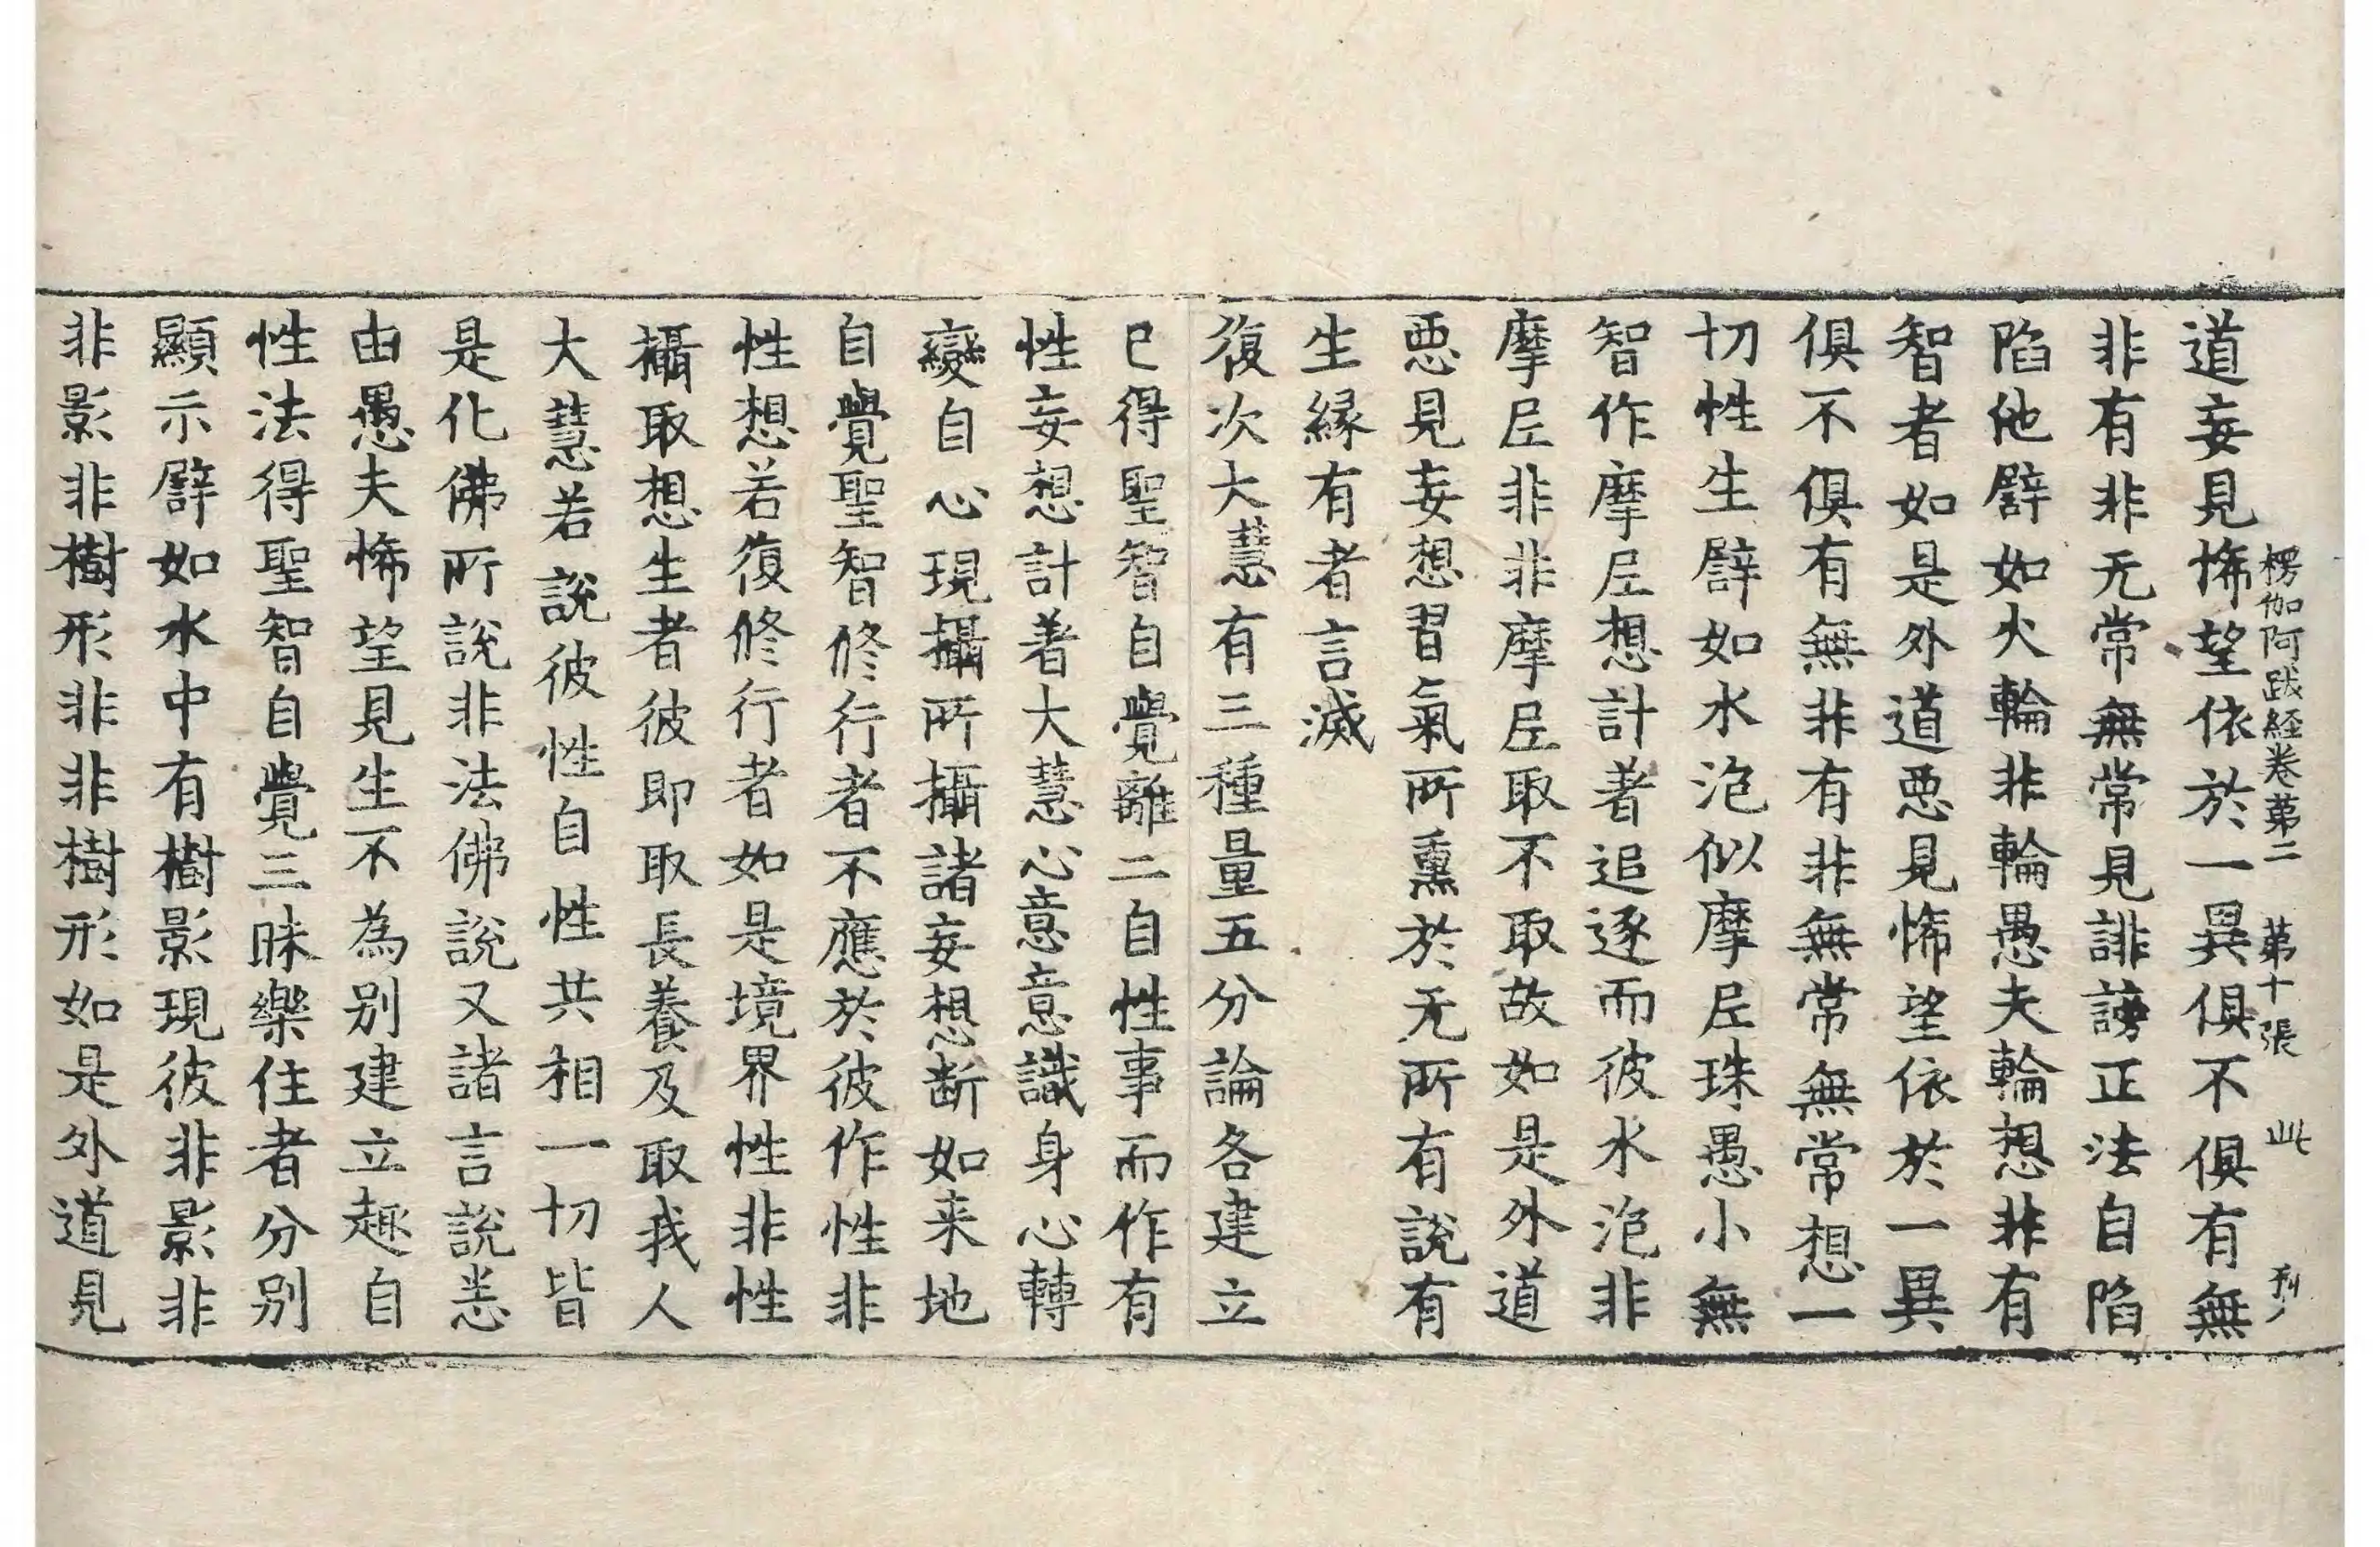 楞伽阿跋経卷苐二　苐十張　此　刊
道妄見悕望依於一異俱不俱有無
非有非无常無常見誹謗正法自陷
陷他譬如火輪非輪愚夫輪想非有
智者如是外道悪見悕望依於一異
俱不俱有無非有非無常無常想一
切性生譬如水泡似摩尼珠愚小無
智作摩尼想計著追逐而彼水泡非
摩尼非非摩尼取不取故如是外道
悪見妄想習氣所熏於无所有說有
生縁有者言滅
復次大慧有三種量五分論各建立
已得聖智自覺離二自性事而作有
性妄想計著大慧心意意識身心轉
變自心現攝所攝諸妄想断如来地
自覺聖智修行者不應於彼作性非
性想若復修行者如是境界性非性
攝取想生者彼即取長養及取我人
大慧若說彼性自性共相一切皆
是化佛所說非法佛說又諸言說悉
由愚夫悕望見生不為别建立趣自
性法得聖智自覺三昧樂住者分别
顯示譬如水中有樹影現彼非影非
非影非樹形非非樹形如是外道見